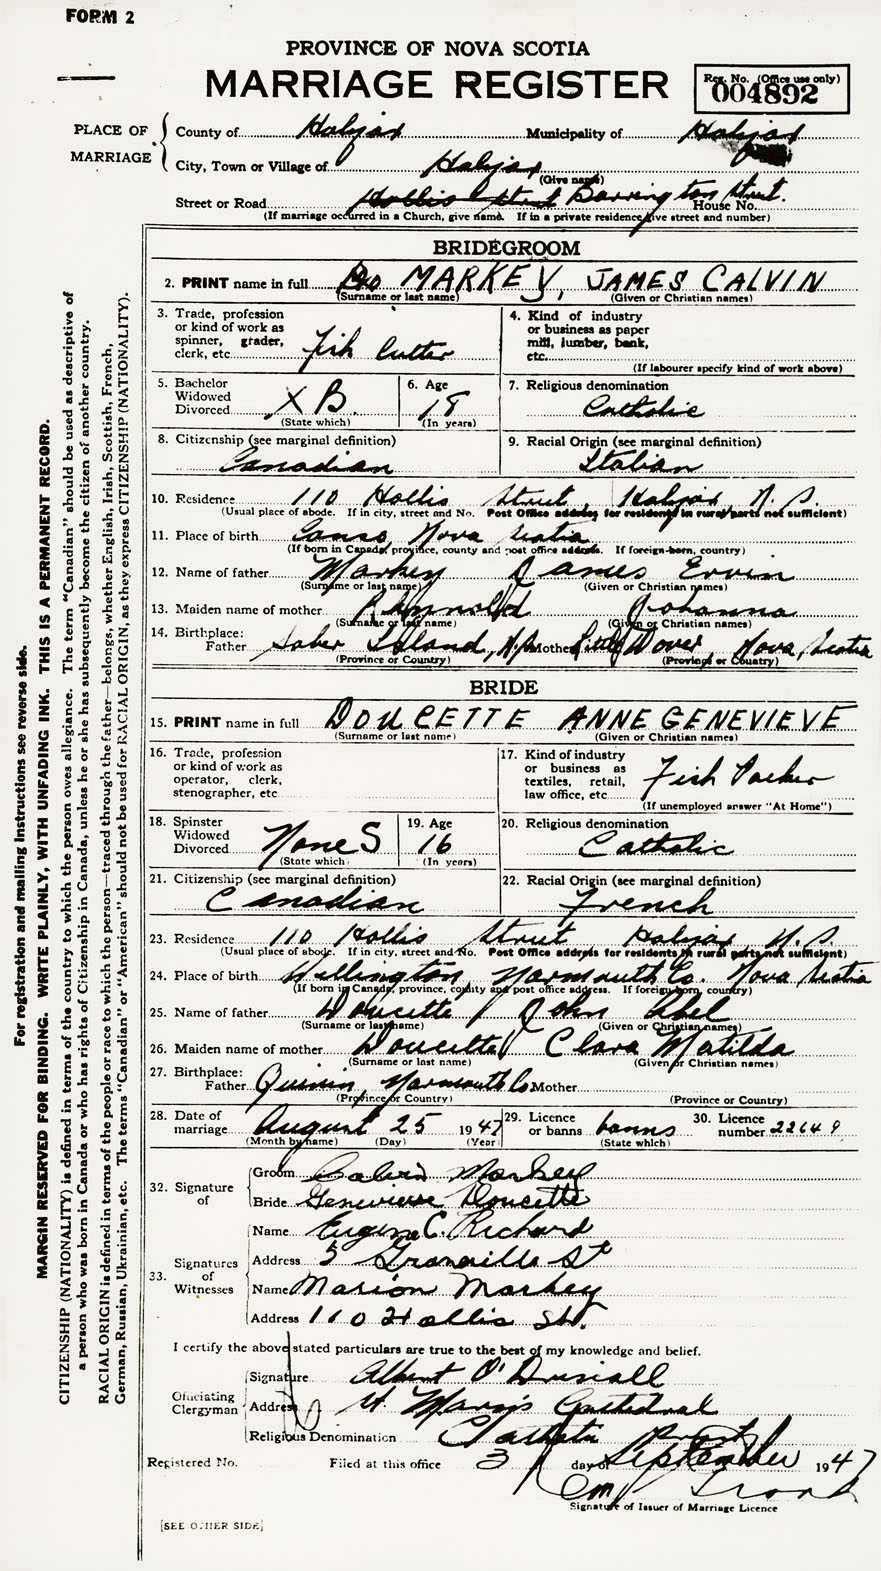 FORM 2
PROVINCE OF NOVA SCOTIA
MARRIAGE REGISTER
Reg. No. (Office use only)
004892
PLACE OF MARRIAGE
County of Halifax Municipality of Halifax
City, Town or Village of Halifax
(Give name)
Street or Road Hollis Street Barrington Street. House No.
(If marriage occurred in a Church, give name. If in a private residence give street and number)
BRIDEGROOM
2. PRINT name in full MARKEY, JAMES CALVIN
(Surname or last name) (Given or Christian names)
3. Trade, profession or kind of work as spinner, grader, clerk, etc. Fish Cutter
4. Kind of industry or business as paper mill, lumber, bank, etc.
(If labourer specify kind of work above)
5. Bachelor Widowed Divorced X B
(State which)
6. Age 18
(In years)
7. Religious denomination
Catholic
8. Citizenship (see marginal definition)
Canadian
9. Racial Origin (see marginal definition)
Italian
10. Residence 110 Hollis Street, Halifax N. S.
(Usual place of abode. If in city, street and No. Post Office address for residents in rural parts not sufficient)
11. Place of birth Canso, Nova Scotia
(If born in Canada, province, county and post office address. If foreign-born, country)
12. Name of father Markey James Ervin
(Surname or last name) (Given or Christian names)
13. Maiden name of mother Johanna
(Surname or last name) (Given or Christian names)
14. Birthplace: Father Island, N.S. Mother Little Dover, Nova Scotia
(Province or Country) (Province or Country)
BRIDE
15. PRINT name in full DOUCETTE ANNE GENEVIEVE
(Surname or last name) (Given or Christian names)
16. Trade, profession or kind of work as operator, clerk, stenographer, etc
17. Kind of industry or business as textiles, retail, law office, etc. Fish Packer
(If unemployed answer "At Home")
18. Spinster Widowed Divorced None S
(State which)
19. Age 16
(In years)
20. Religious denomination
Catholic
21. Citizenship (see marginal definition)
Canadian
22. Racial Origin (see marginal definition)
French
23. Residence 110 Hollis Street Halifax N. S.
(Usual place of abode. If in city, street and No. Post Office address for residents in rural parts not sufficient)
24. Place of birth Wellington, Yarmouth Co. Nova Scotia
(If born in Canada, province, county and post office address. If foreign born, country)
25. Name of father Doucette John Abel
(Surname or last name) (Given or Christian names)
26. Maiden name of mother Doucette Clara Matilda
(Surname or last name) (Given or Christian names)
27. Birthplace: Father Quinin, Yarmouth Co Mother
(Province or Country) (Province or Country)
28. Date of marriage August 25 1947
(Month by name) (Day) (Year)
29. Licence or banns banns
(State which)
30. Licence number 22649
32. Signature of
Groom Calvin Markey
Bride Genevieve Doucette
33. Signatures of Witnesses
Name Eugene C. Richard
Address 5 Granville St
Name Marion Markey
Address 110 Hollis St.
I certify the above stated particulars are true to the best of my knowledge and belief.
Officiating Clergyman
Signature Albert O'Driscoll
Address St Mary's Cathedral
Religious Denomination Catholic Priest
Registered No. Filed at this office 3 day of September 1947
Signature of Issuer of Marriage Licence
[SEE OTHER SIDE]
For registration and mailing instructions see reverse side.
MARGIN RESERVED FOR BINDING. WRITE PLAINLY, WITH UNFADING INK. THIS IS A PERMANENT RECORD.
CITIZENSHIP (NATIONALITY) is defined in terms of the country to which the person owes allegiance. The term "Canadian" should be used as descriptive of
a person who was born in Canada or who has rights of Citizenship in Canada, unless he or she has subsequently become the citizen of another country.
RACIAL ORIGIN is defined in terms of the people or race to which the person—traced through the father—belongs, whether English, Irish, Scottish, French,
German, Russian, Ukrainian, etc. The terms "Canadian" or "American" should not be used for RACIAL ORIGIN, as they express CITIZENSHIP (NATIONALITY).